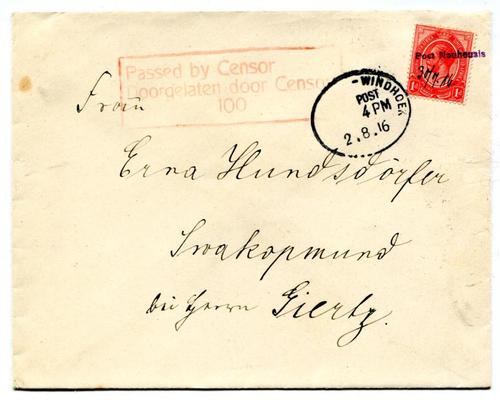 Passed by Censor
Doorgelaten door Censor
100
WINDHOEK
POST
4 PM
2.8.16
Post Nauhauzis
Frau
Erna Hundsdörfer
Swakopmund
bei Herrn Giertz.